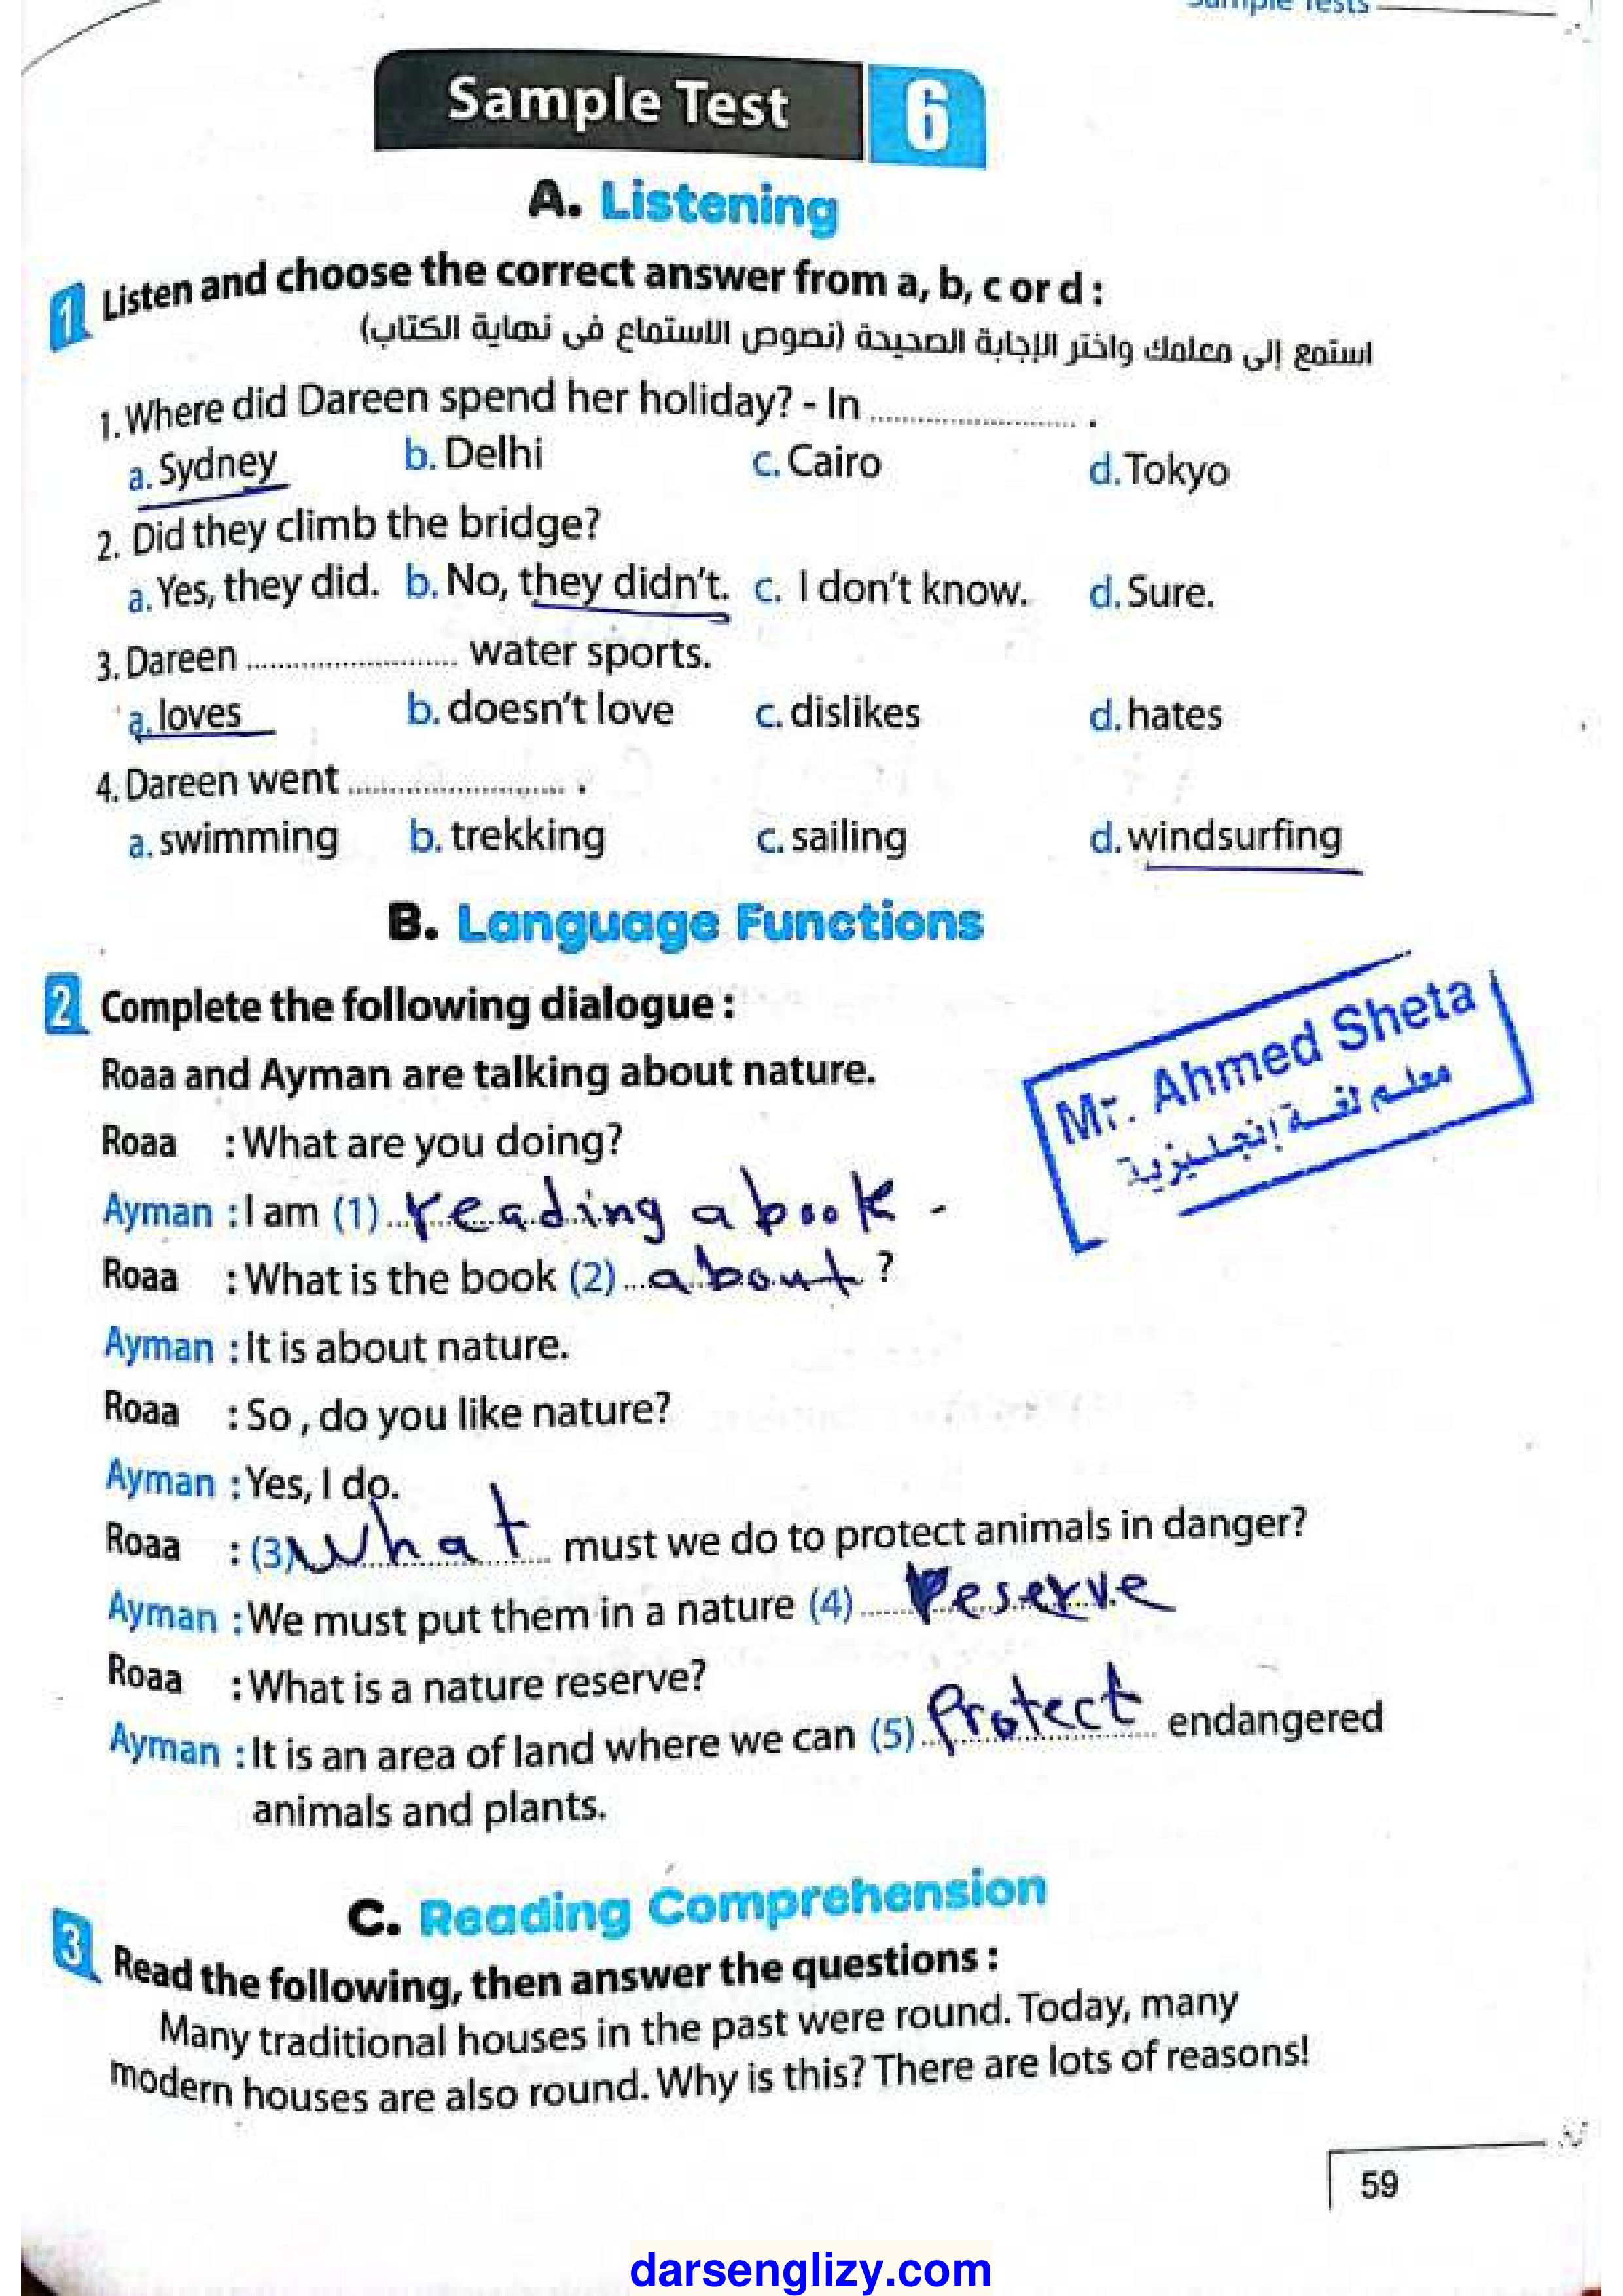 Sample Tests
Sample Test 6
A. Listening
1 Listen and choose the correct answer from a, b, c or d :
استمع إلى معلمك واختر الإجابة الصحيحة (نصوص الاستماع فى نهاية الكتاب)
1. Where did Dareen spend her holiday? - In ........................ .
a. Sydney b. Delhi c. Cairo d. Tokyo
2. Did they climb the bridge?
a. Yes, they did. b. No, they didn't. c. I don't know. d. Sure.
3. Dareen ........................ water sports.
a. loves b. doesn't love c. dislikes d. hates
4. Dareen went ........................ .
a. swimming b. trekking c. sailing d. windsurfing
B. Language Functions
2 Complete the following dialogue :
Mr. Ahmed Sheta
معلم لغة إنجليزية
Roaa and Ayman are talking about nature.
Roaa : What are you doing?
Ayman : I am (1) reading a book .
Roaa : What is the book (2) about ?
Ayman : It is about nature.
Roaa : So , do you like nature?
Ayman : Yes, I do.
Roaa : (3) What must we do to protect animals in danger?
Ayman : We must put them in a nature (4) reserve
Roaa : What is a nature reserve?
Ayman : It is an area of land where we can (5) Protect endangered
animals and plants.
C. Reading Comprehension
3 Read the following, then answer the questions :
Many traditional houses in the past were round. Today, many
modern houses are also round. Why is this? There are lots of reasons!
59
darsenglizy.com